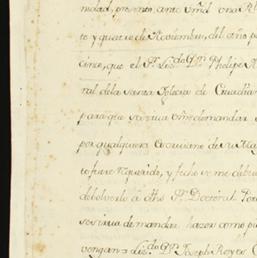 nidad, presento, ante Vmd una R
te y quatro de Noviembre, del año p
cinco, que el Sr. Lizdo. Dn. Phelipe R
ral dela Santa Iglesia de Ciudad
para que se sirva Vm demandar
por qualquiera Escrivano de su Ma
to fuere requerido, y fecho se me debu
debolverlo a dho Sr. Doctoral Por
se sirva demandar hazer como pi
vengan a Lizdo. Dn. Joseph Reyes